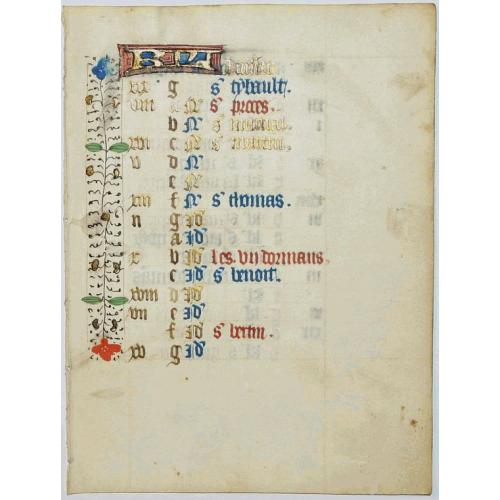 KL
xix g s' tybault.
viii N s'
b N s'
xvi c N s' martin.
v d N
e N
xiii f N s' thomas.
ii g Id
a Id
x b Id les vii dormans.
c Id s' benoit.
xviii d Id
vii e Id
f Id s' bertin.
xv g Id